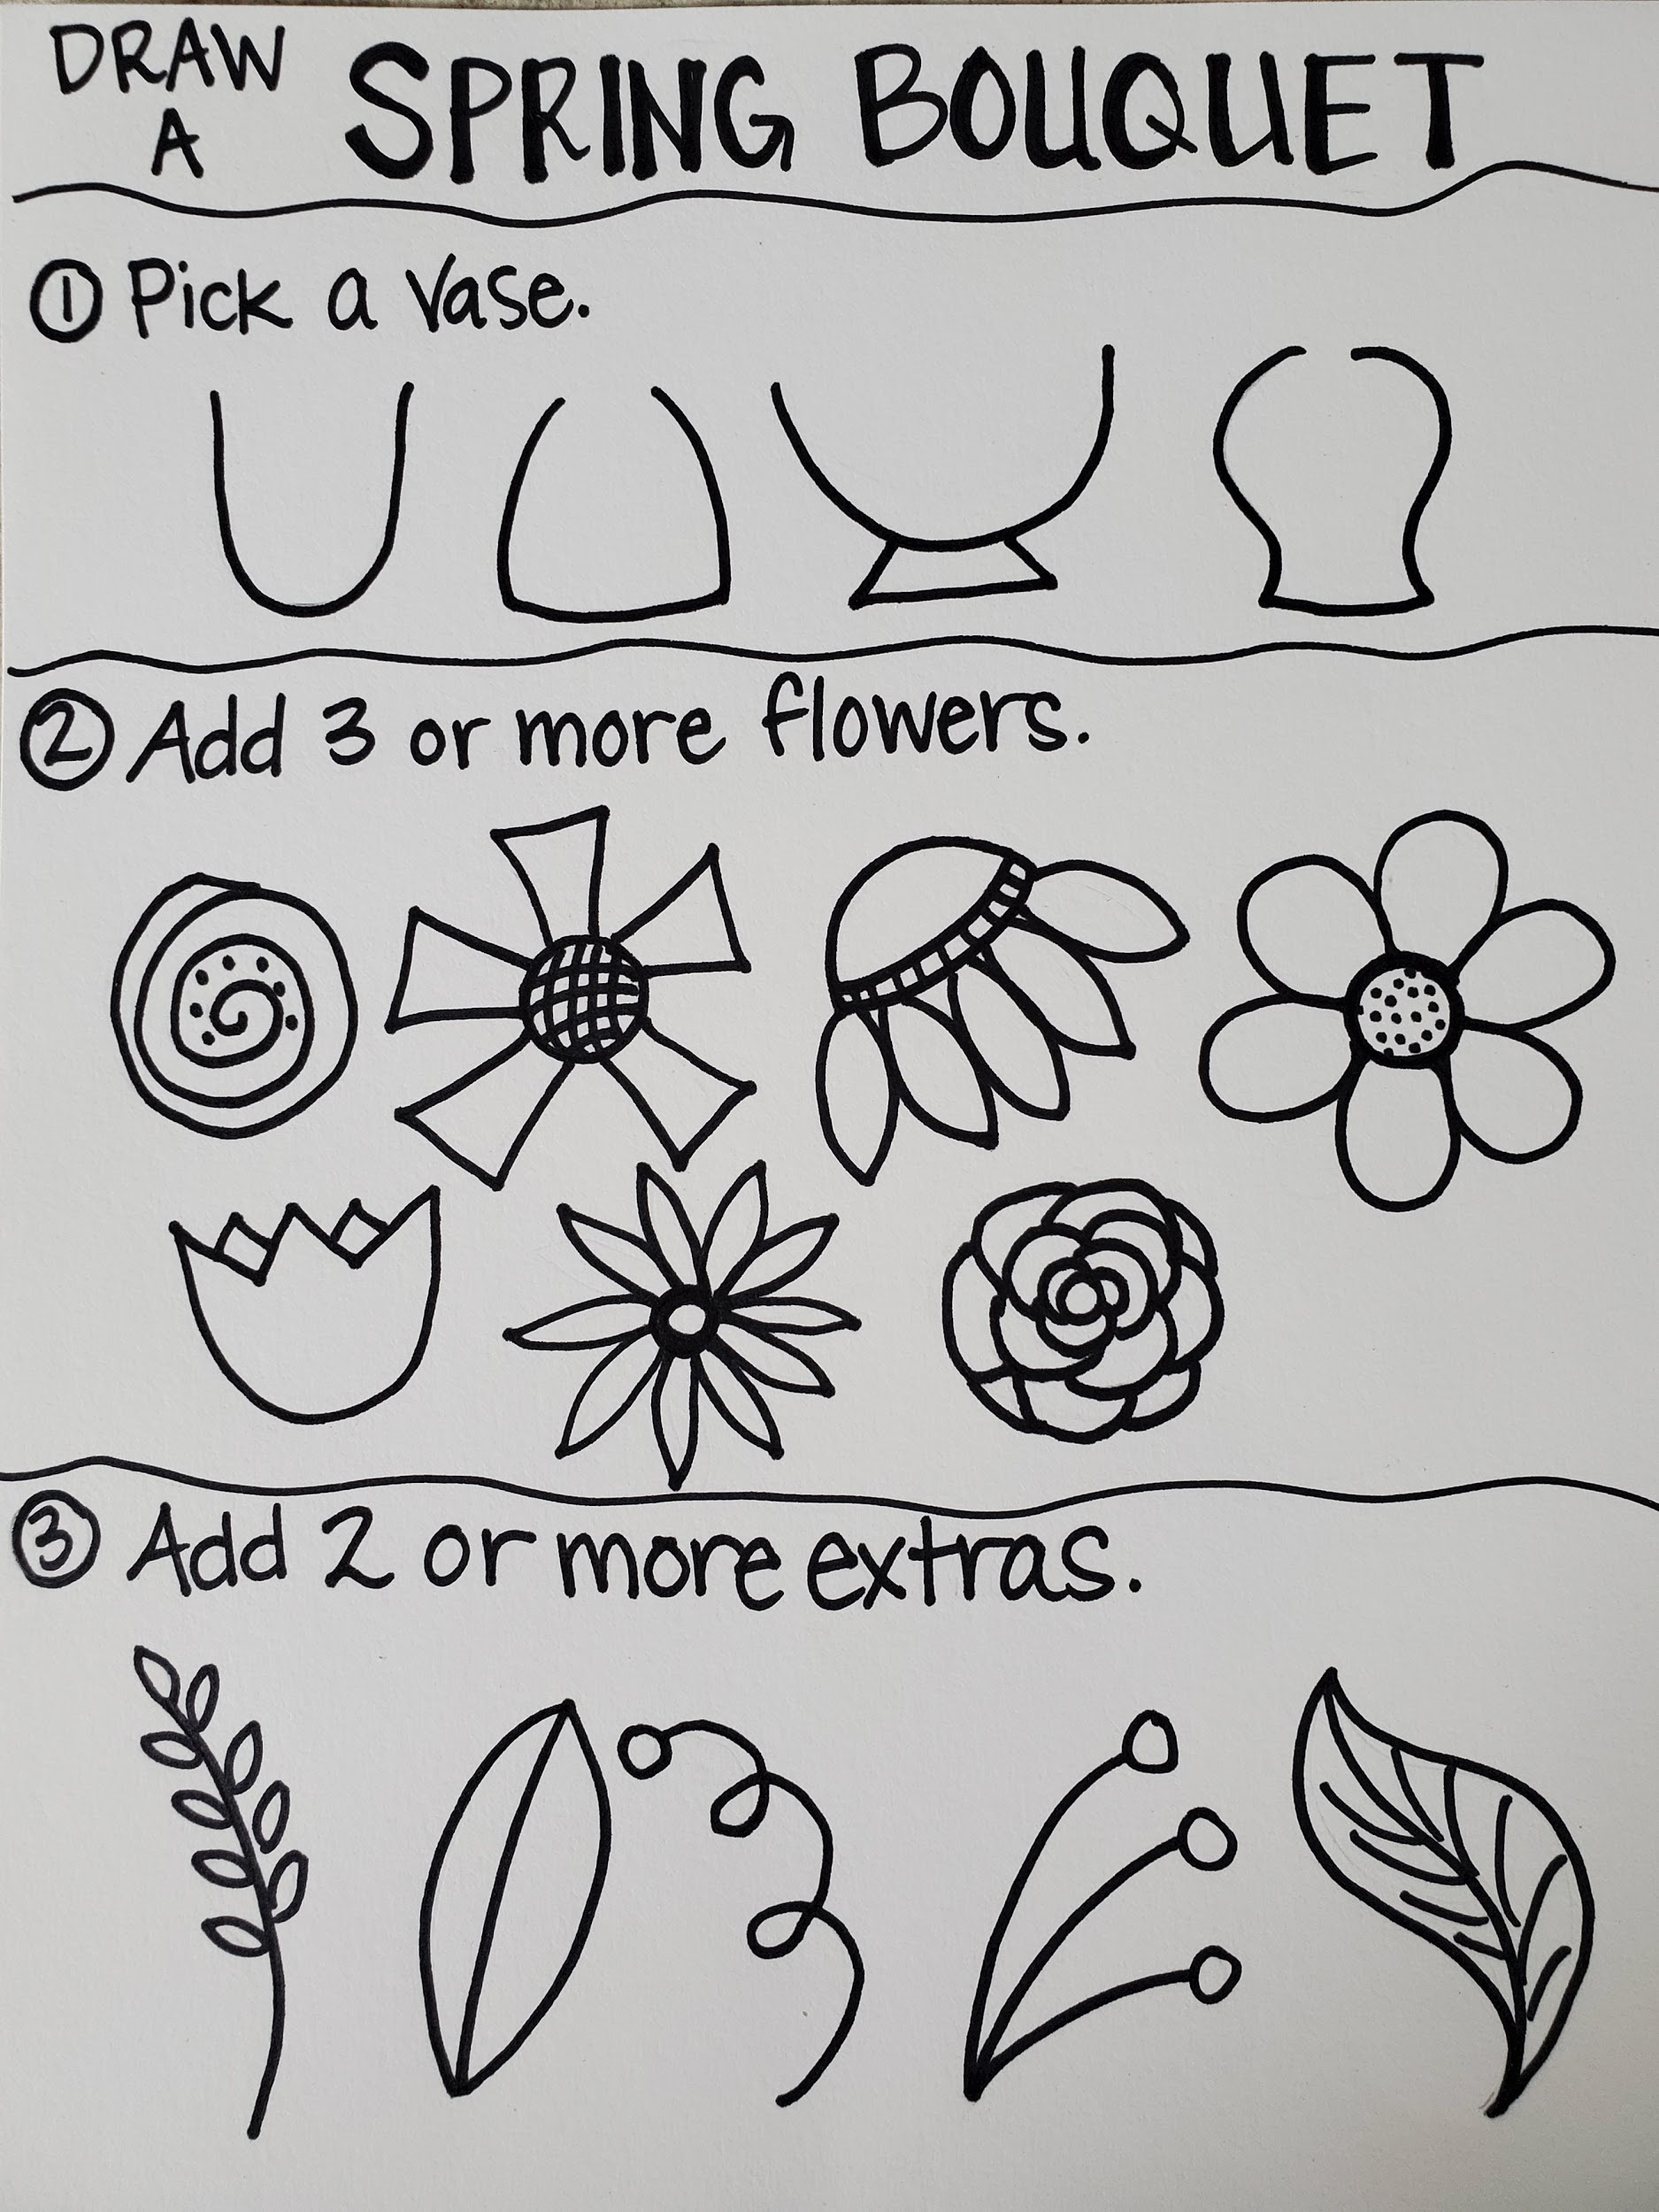 DRAW
A SPRING BOUQUET
① Pick a Vase.
② Add 3 or more flowers.
③ Add 2 or more extras.